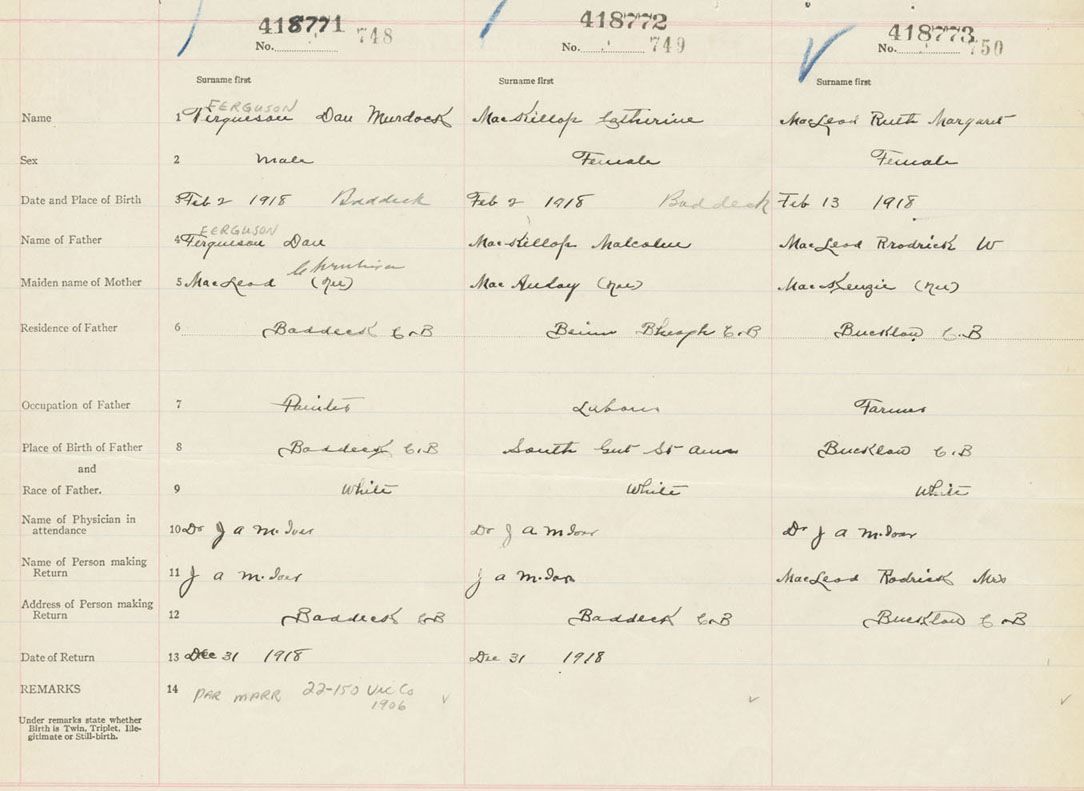 418771 418772 418773
No. 748 No. 749 No. 750
Surname first Surname first Surname first
FERGUSON
Name 1 Ferguison Dan Murdock MacSkillop Catherine MacLeod Ruth Margaret
Sex 2 Male Female Female
Date and Place of Birth 3 Feb 2 1918 Baddeck Feb 2 1918 Baddeck Feb 13 1918
FERGUSON
Name of Father 4 Ferguison Dan MacSkillop Malcolm MacLeod Rrodrick W
Christina
Maiden name of Mother 5 MacLeod (Nee) MacAulay (Nee) MacKenzie (Nee)
Residence of Father 6 Baddeck C.B Beinn Bhreagh C.B Bucklaw C.B
Occupation of Father 7 Painter Labour Farmer
Place of Birth of Father 8 Baddeck C.B South Gut St Anns Bucklaw C.B
and
Race of Father. 9 White White White
Name of Physician in
attendance 10 Dr J A McIver Dr J A McIver Dr J A McIver
Name of Person making
Return 11 J A McIver J A McIver MacLeod Rodrick Mrs
Address of Person making
Return 12 Baddeck CB Baddeck C.B Bucklaw C.B
Date of Return 13 Dec 31 1918 Dec 31 1918
REMARKS 14 PAR MARR 22-150 Vic Co
1906
Under remarks state whether
Birth is Twin, Triplet, Ille-
gitimate or Still-birth.